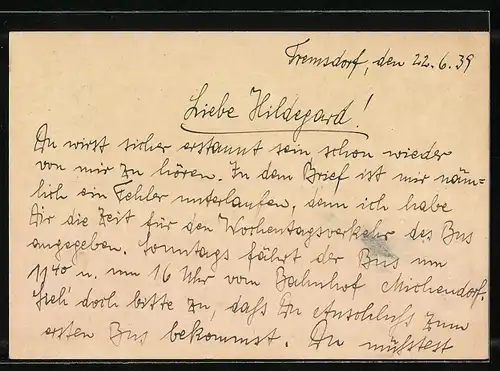 Fremsdorf, den 22.6.39
Liebe Hildegard!
Du wirst sicher erstaunt sein schon wieder
von mir zu hören. In dem Brief ist mir näm=
lich ein Fehler unterlaufen, denn ich habe
Dir die Zeit für den Wochentagsverkehr des Bus
angegeben. Sonntags fährt der Bus um
11⁴⁰ u. um 16 Uhr vom Bahnhof Michendorf.
Sieh doch bitte zu, daß Du Anschluß zum
ersten Bus bekommst. Du müßtest